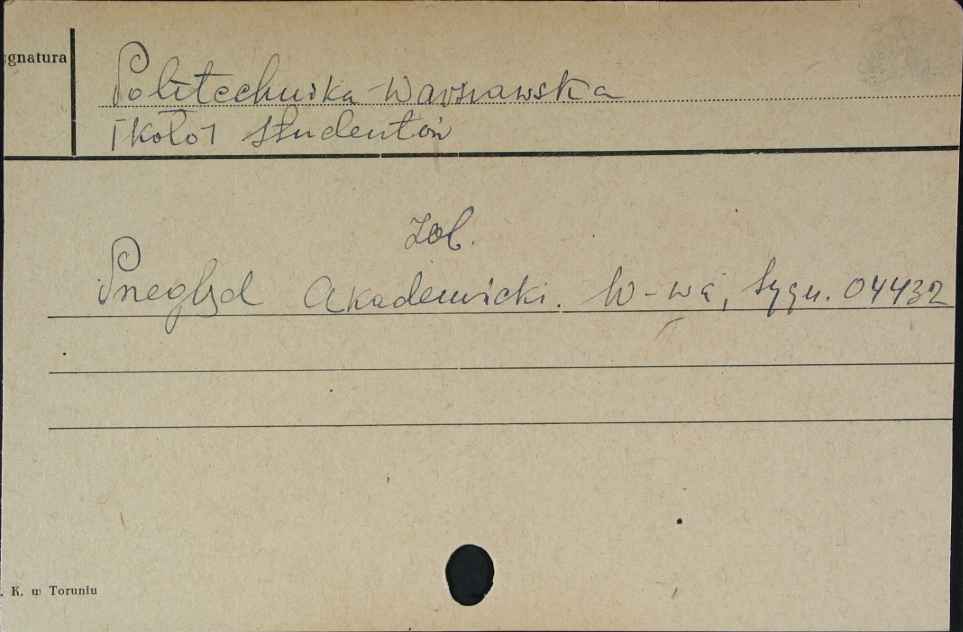 gnatura
Politechnika Warszawska
[Koło] studentów
Zob.
Przegląd Akademicki. W-wa, Sygn. 04432
. K. w Toruniu